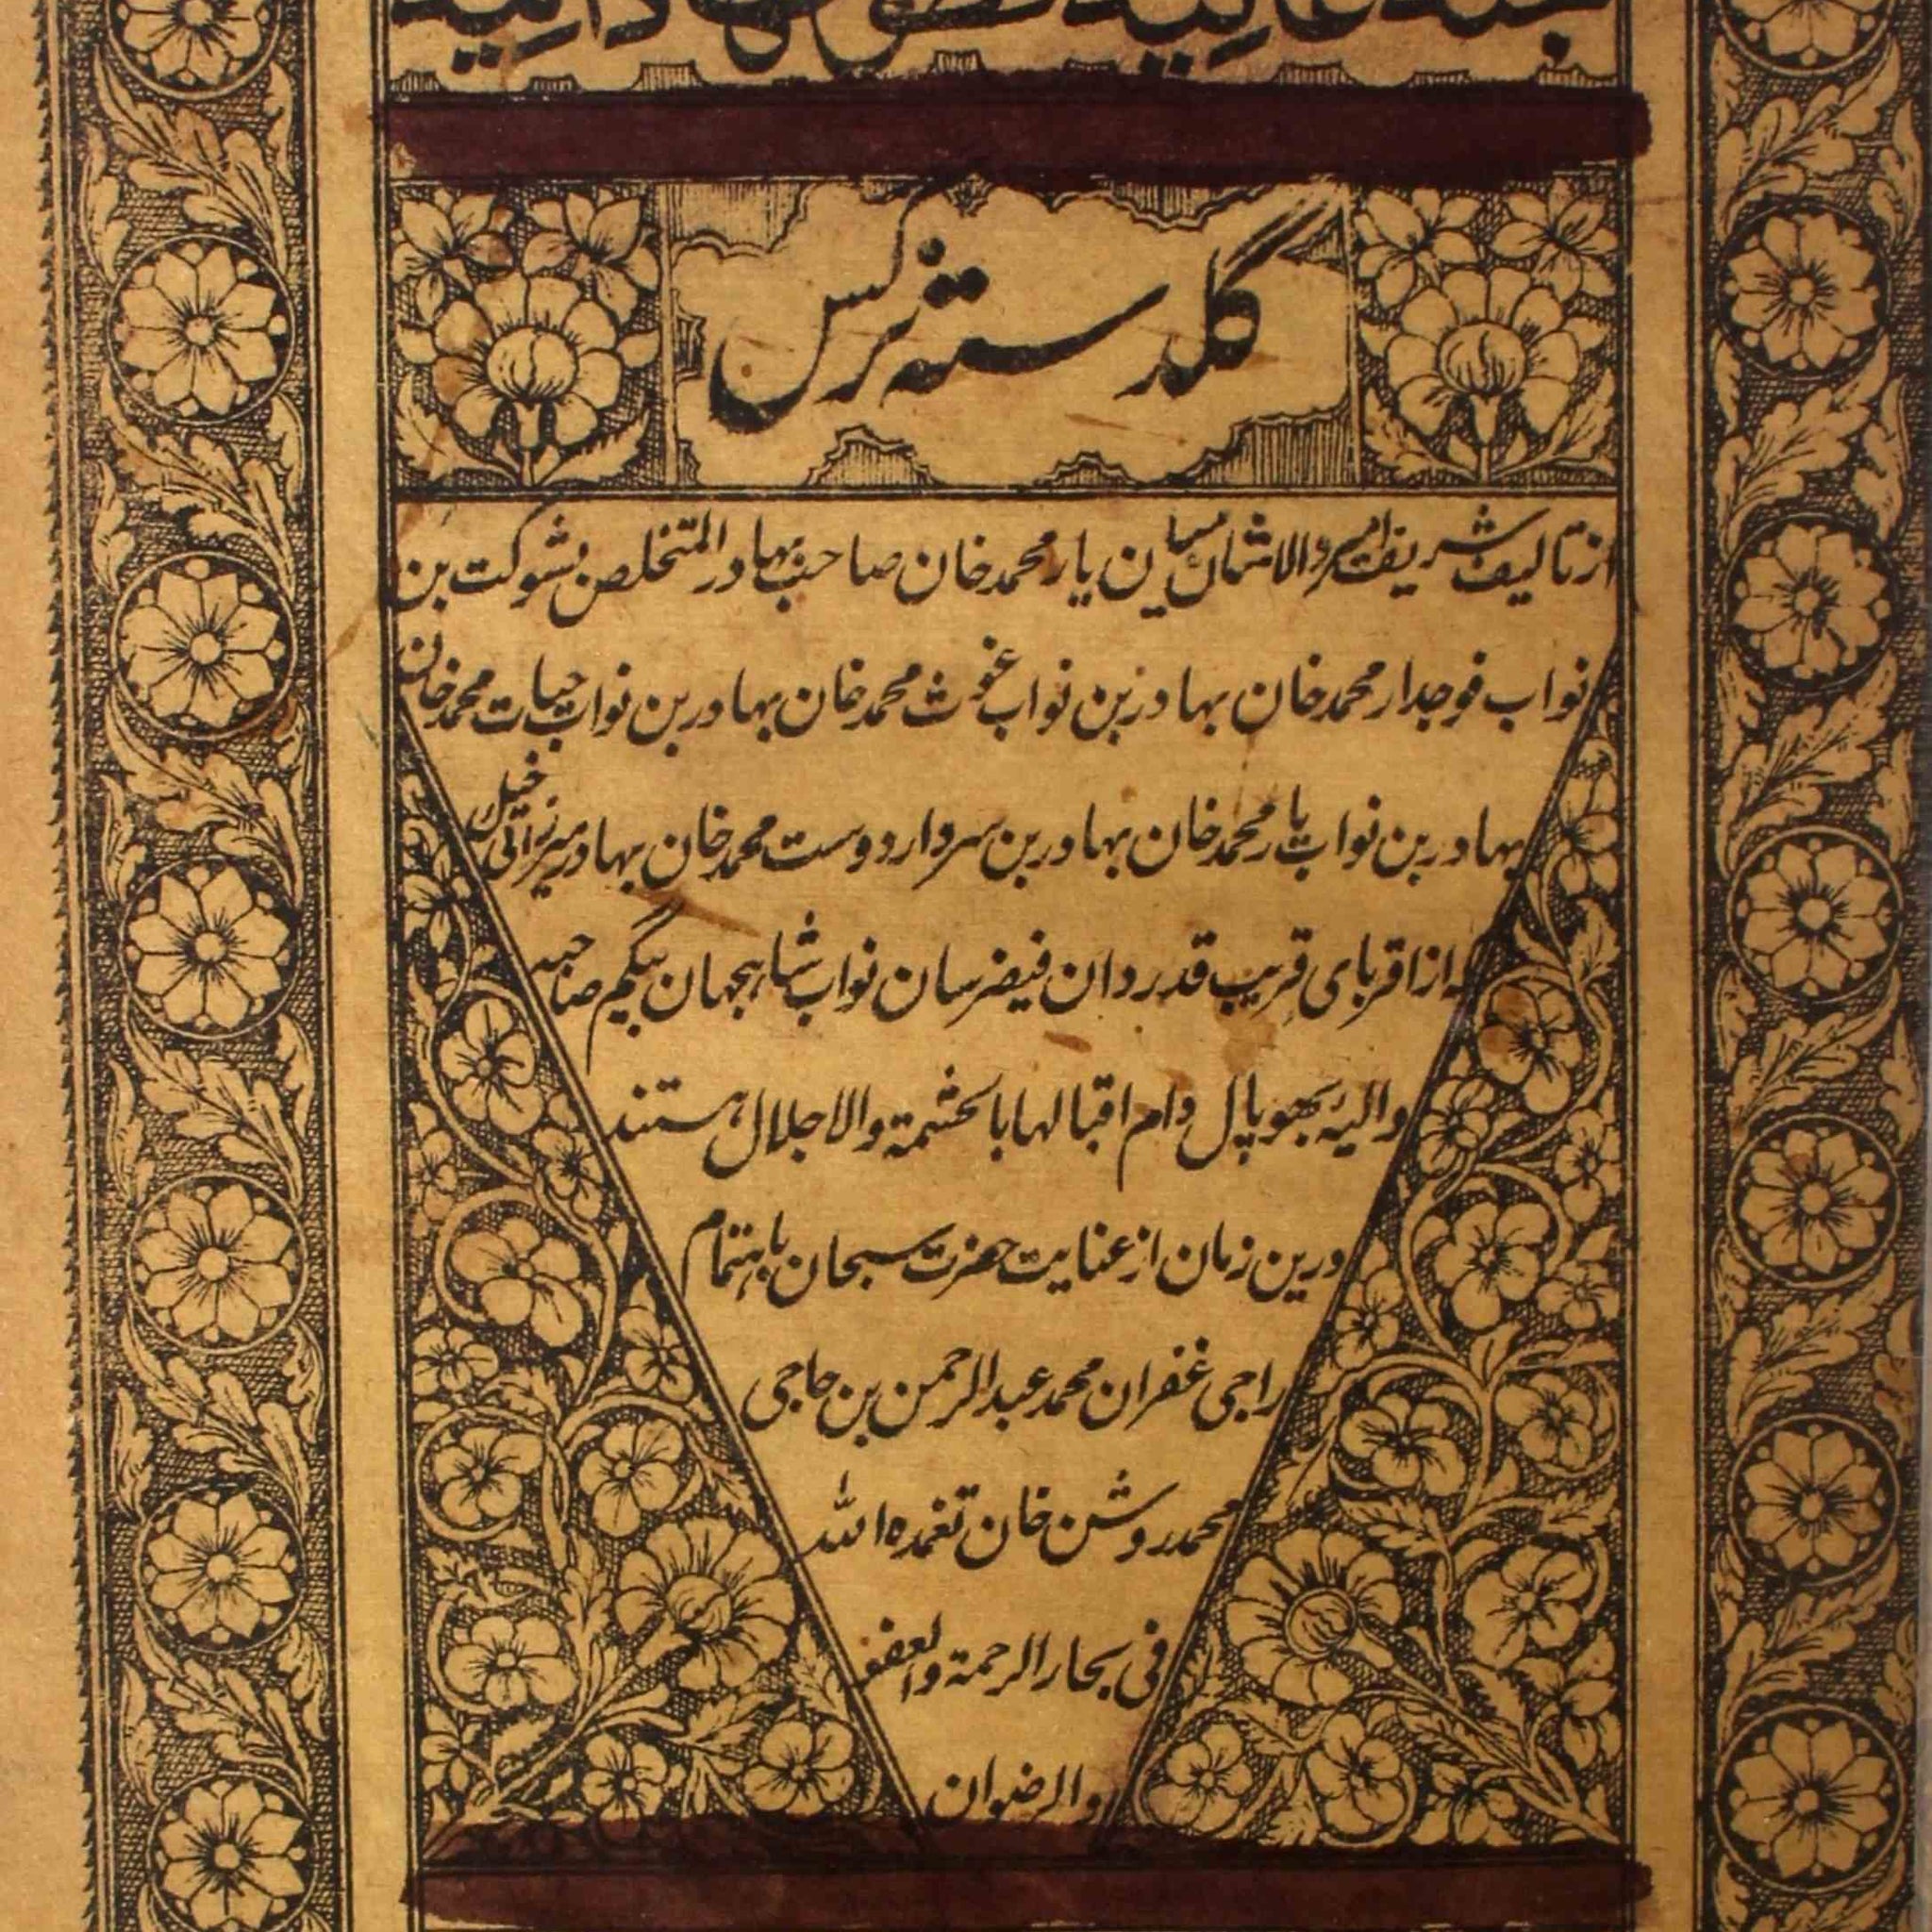 گلدستہ نرگس
از تالیف شریف امیر والاشان میان یار محمد خان صاحب بہادر المتخلص بشوکت بن
نواب فوجدار محمد خان بہادر بن نواب غوث محمد خان بہادر بن نواب حیات محمد خان
بہادر بن نواب یار محمد خان بہادر بن سردار دوست محمد خان بہادر میرزائی خیل
کہ از اقربای قریب قدردان فیضرسان نواب شاہجہان بیگم صاحبہ
والیہ بھوپال دام اقبالہا بالحشمۃ والاجلال ہستند
درین زمان از عنایت حضرت سبحان باہتمام
راجی غفران محمد عبدالرحمن بن حاجی
محمد روشن خان تغمدہ اللہ
فی بحار الرحمۃ والعفو
والرضوان